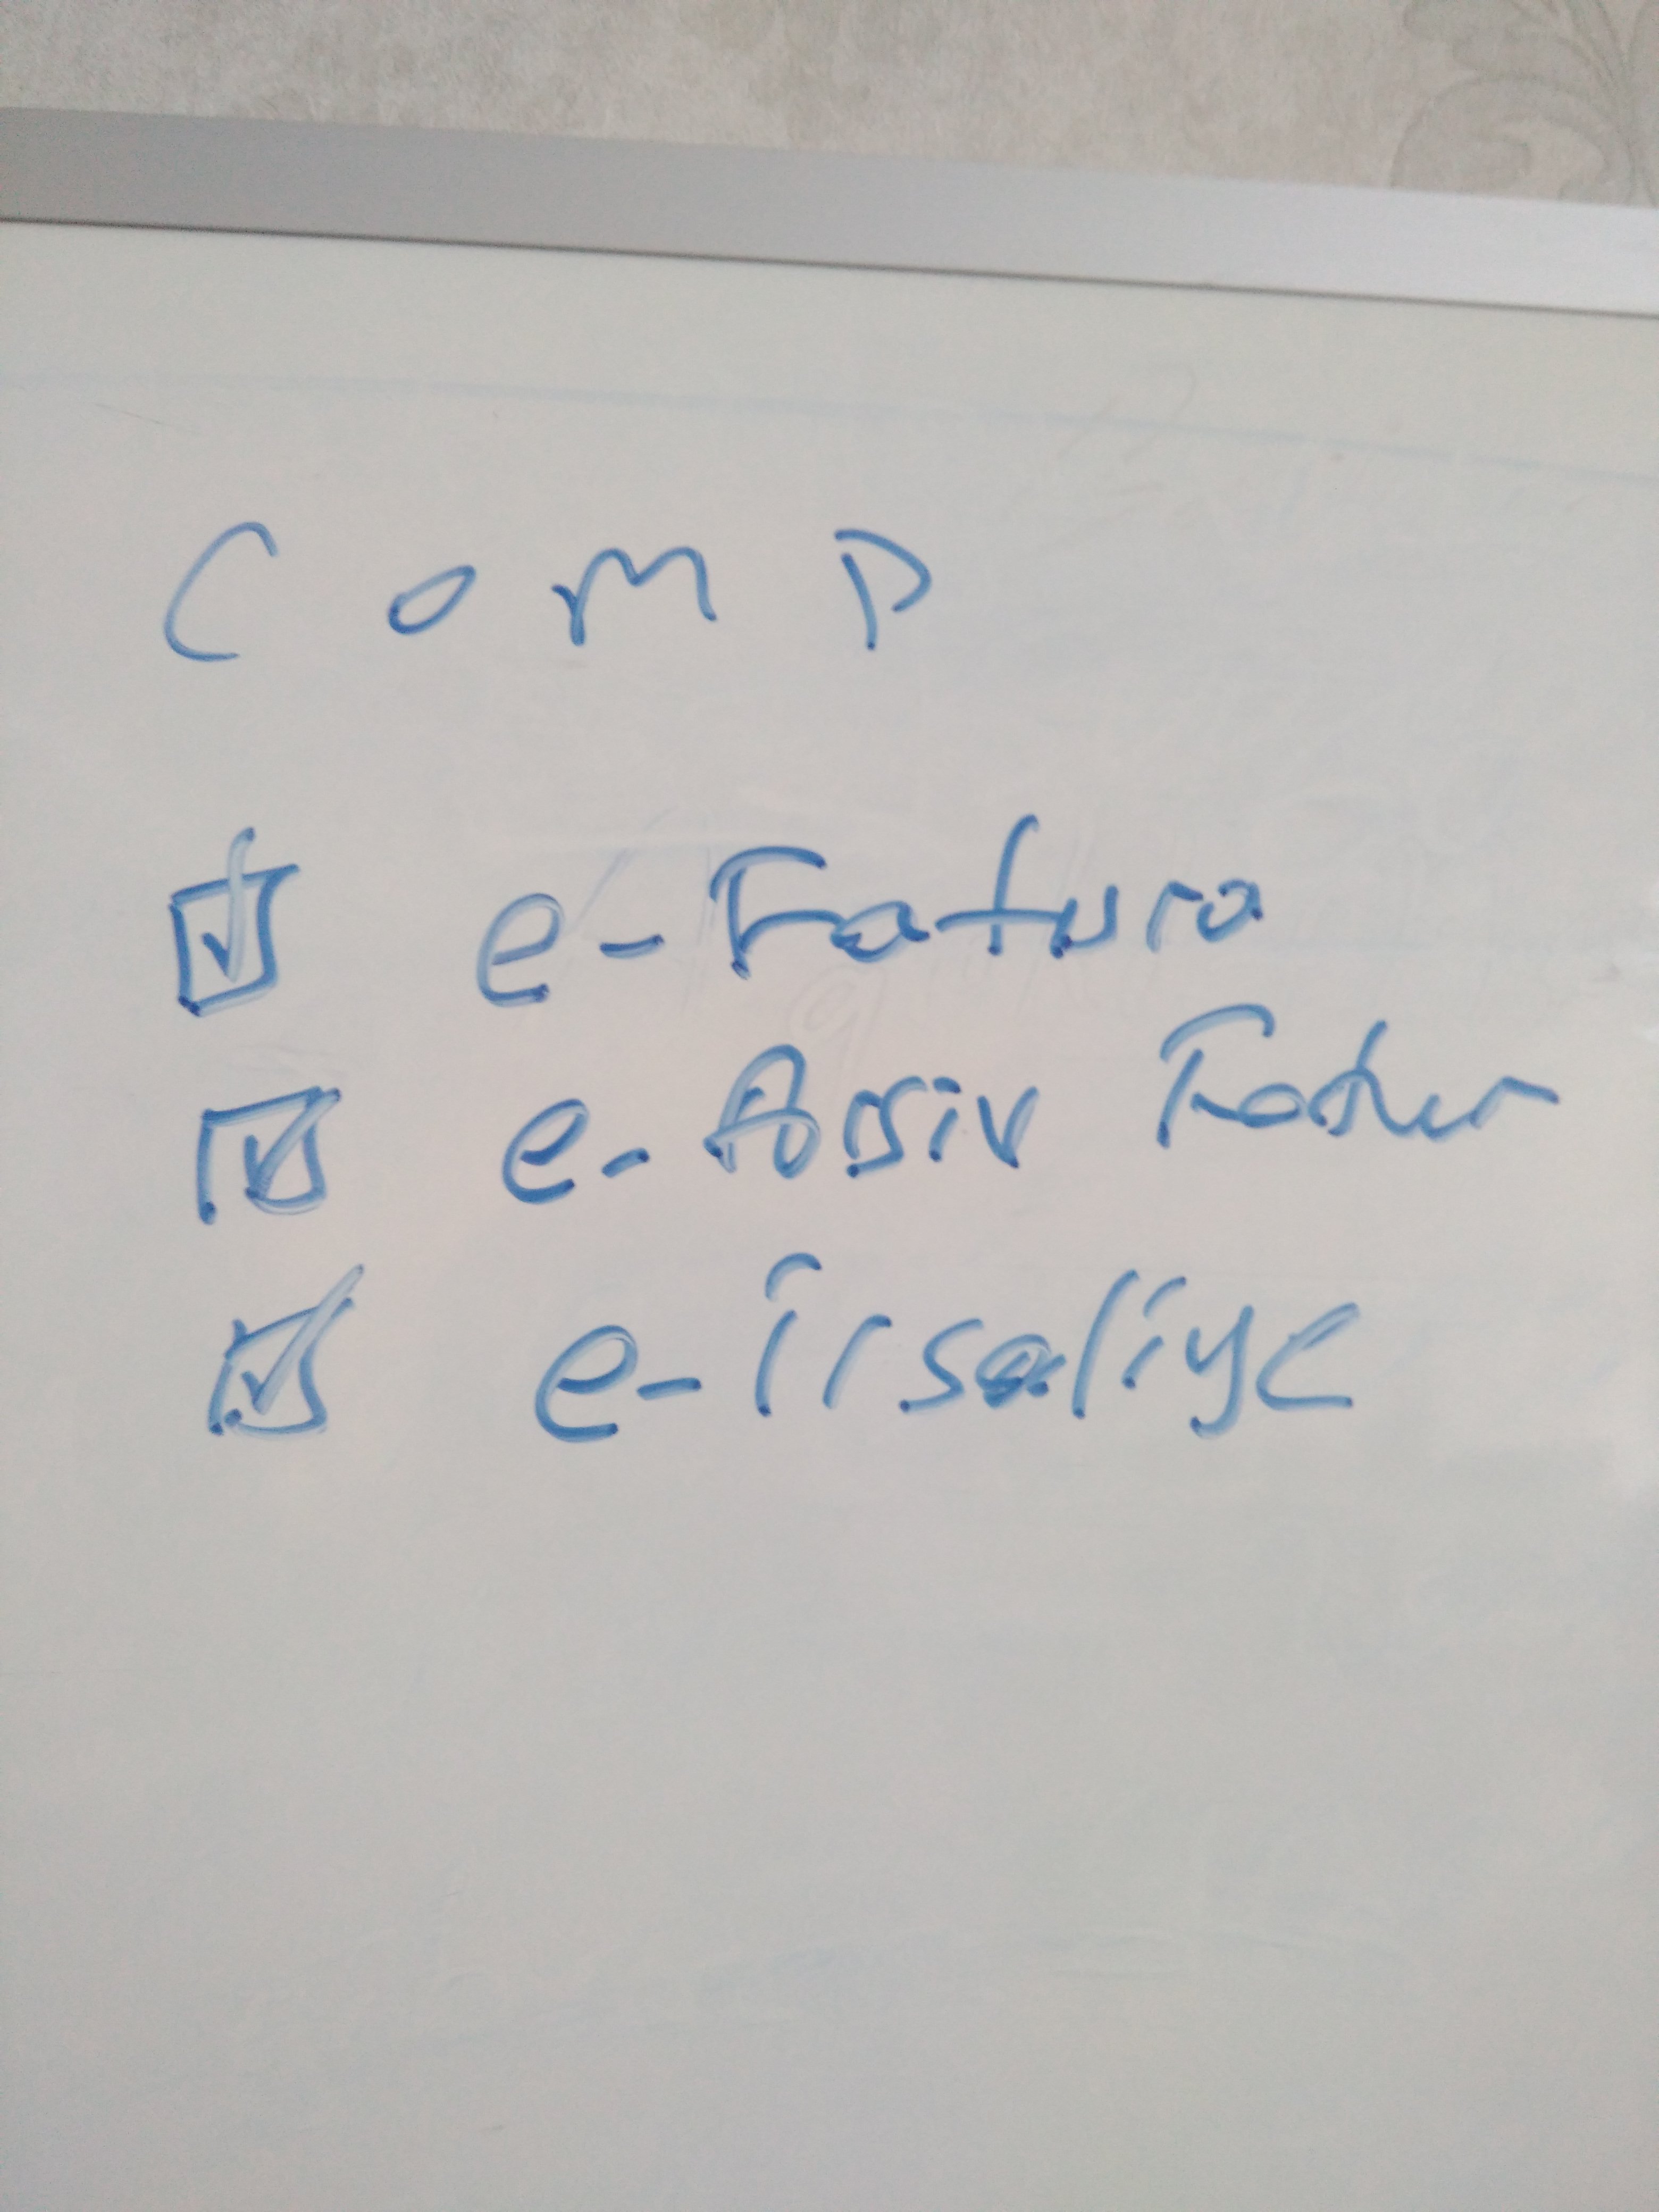 Comp
☑ e-Fatura
☑ e-Arşiv Fatura
☑ e-İrsaliye